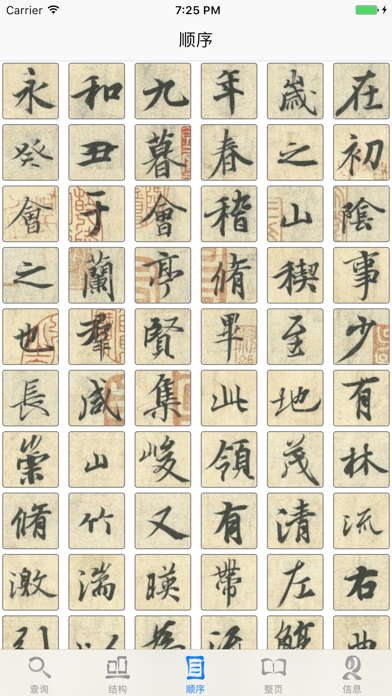 Carrier 7:25 PM
顺序
永和九年歲在
癸丑暮春之初
會于會稽山陰
之蘭亭脩稧事
也羣賢畢至少
長咸集此地有
崇山峻領茂林
脩竹又有清流
激湍暎帶左右
引以為流觴曲
查询 结构 顺序 整页 信息